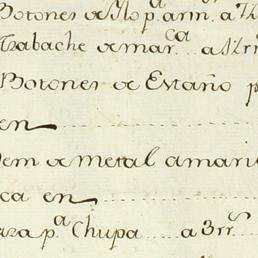 Botones de Ylo p.ª arm. a
Azabache de mar.ca a 12 rr
Botones de Estaño p
en
dem de metal amari
ca en
ara p.ª Chupa a 3 rr.s